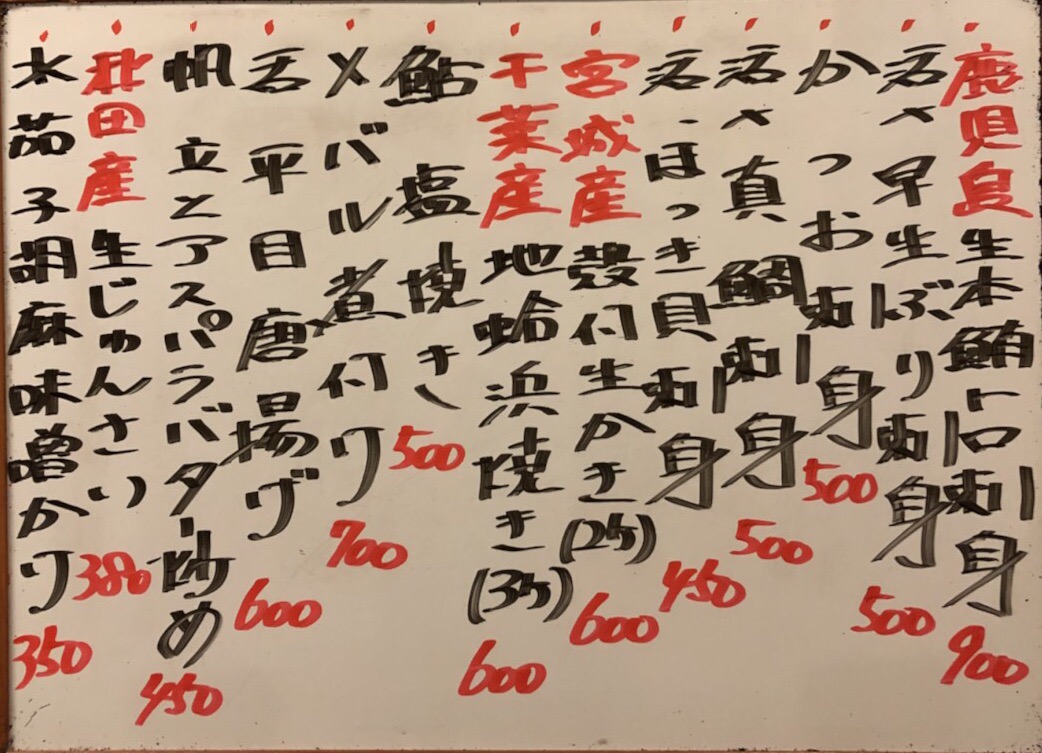 鹿児島生本鮪トロ刺身 900
活〆早生ぶり刺身 500
かつお刺身 500
活〆真鯛刺身 500
活・ほっき貝刺身 450
宮城産殻付生かき(2ケ) 600
千葉産地蛤浜焼き(3ケ) 600
鮎塩焼き 500
メバル煮付け 700
舌平目唐揚げ 600
帆立とアスパラバター炒め 450
秋田産生じゅんさい 380
水茄子胡麻味噌かけ 350